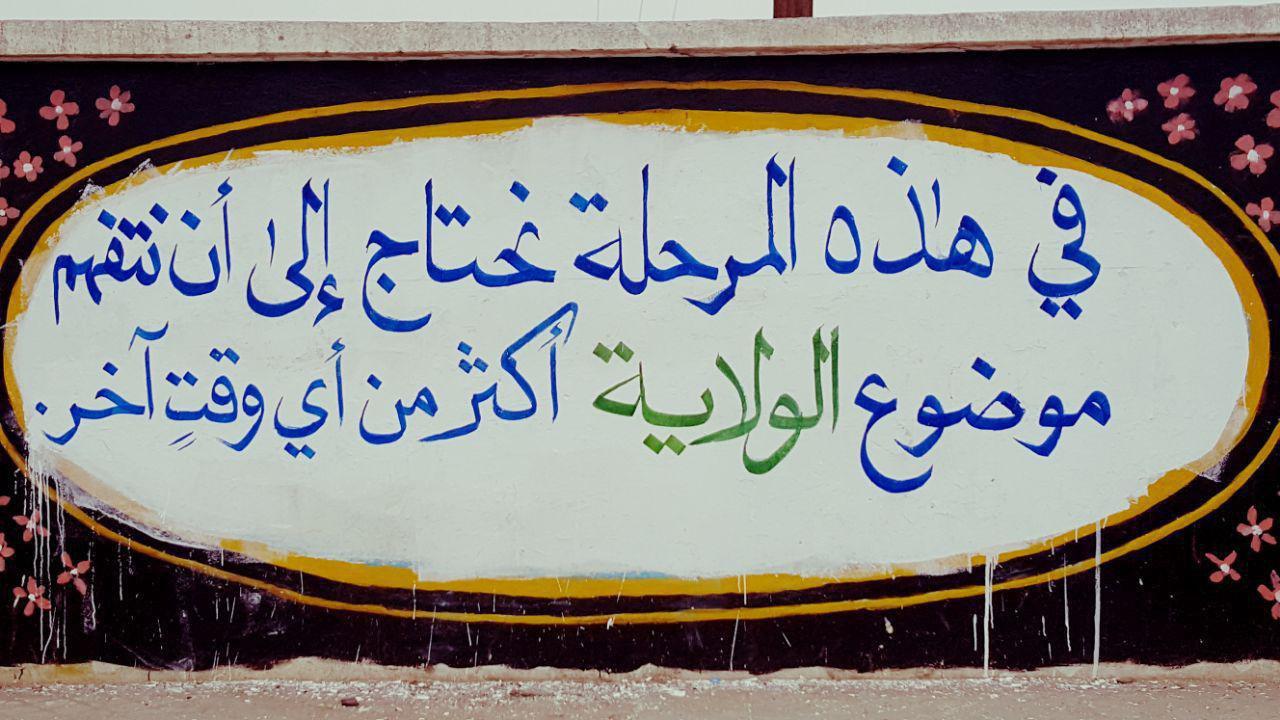 في هٰذه المرحلة نحتاج إلىٰ أن نتفهم
موضوع الولاية أكثر من أي وقتٍ آخر.